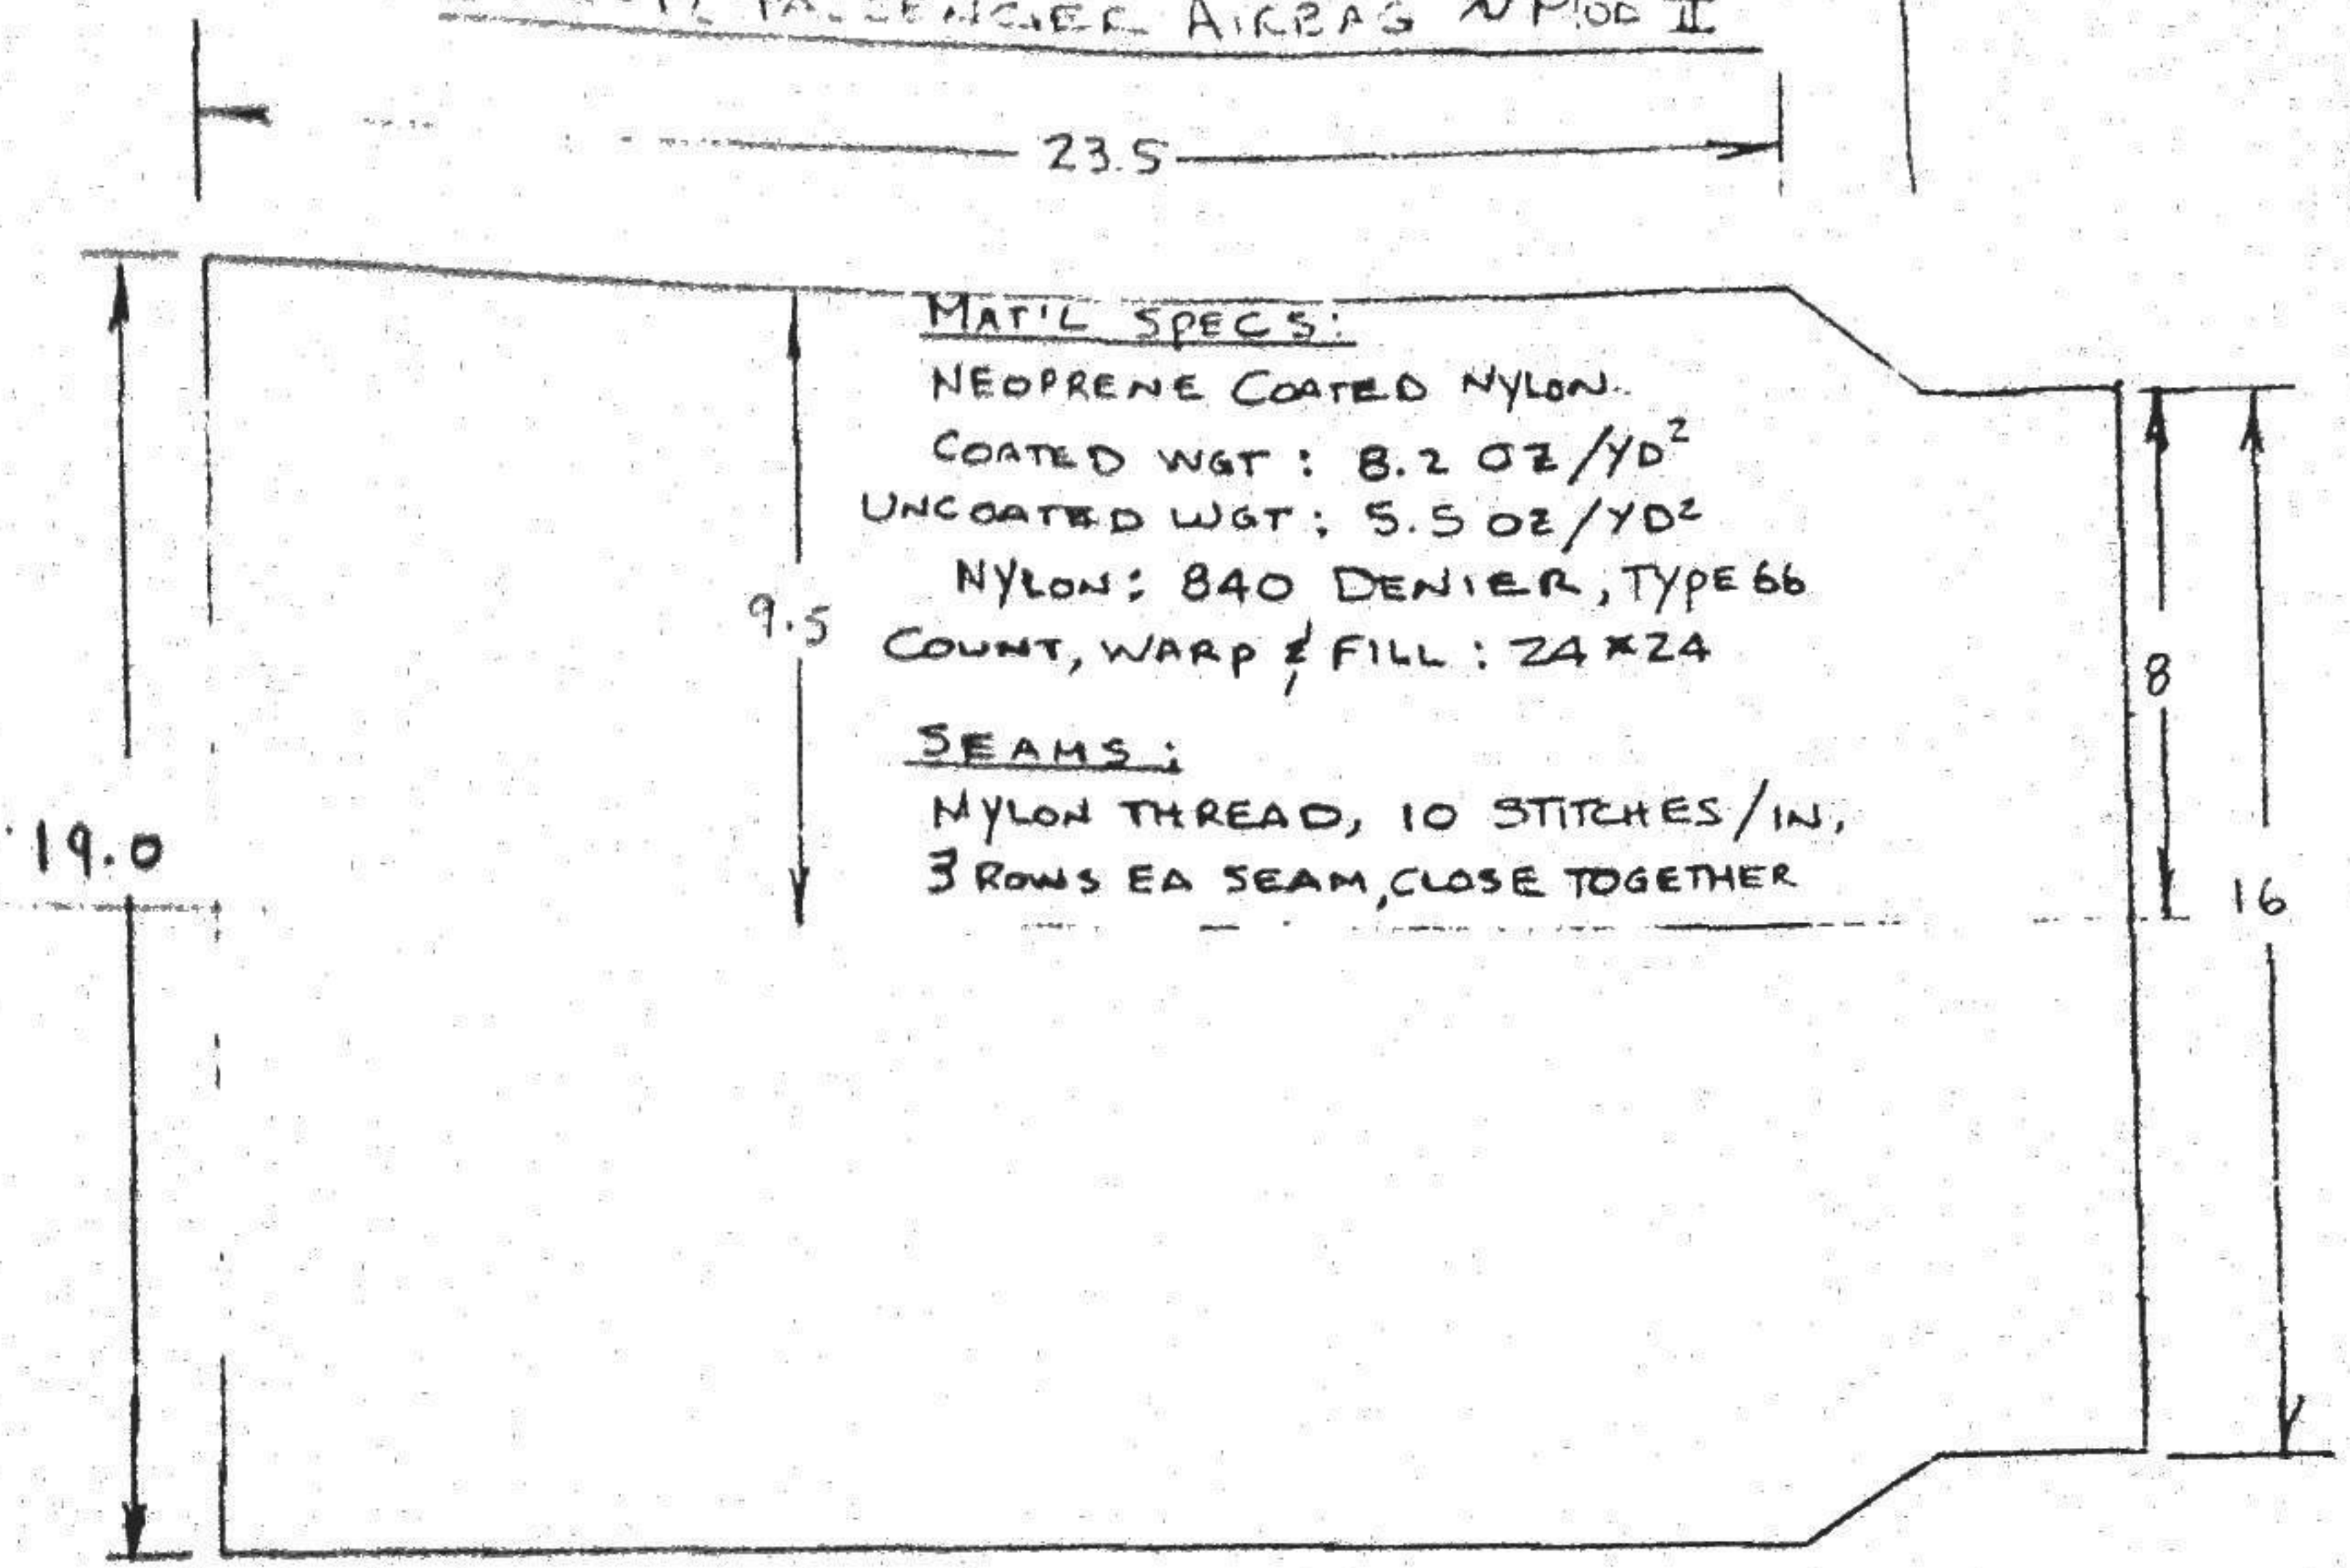 AIRBAG ~ MOD II
23.5
MAT'L SPECS:
NEOPRENE COATED NYLON
COATED WGT: 8.2 OZ/YD²
UNCOATED WGT: 5.5 OZ/YD²
NYLON: 840 DENIER, TYPE 66
9.5
COUNT, WARP & FILL: 24 x 24
8
SEAMS:
NYLON THREAD, 10 STITCHES/IN,
19.0
3 ROWS EA SEAM, CLOSE TOGETHER
16